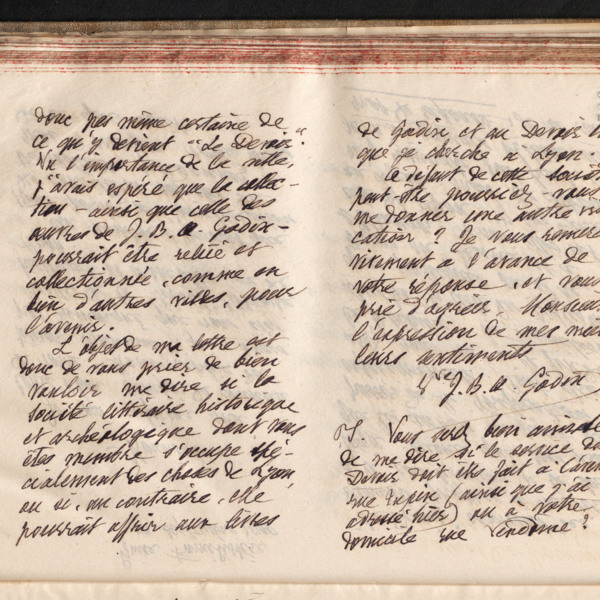 donc pas même certaine de
ce qu'y devient "Le Devoir".
Vu l'importance de la ville,
j'avais espéré que la collec-
tion - ainsi que celle des
œuvres de J. B. A. Godin -
pourrait être reliée et
collectionnée, comme en
bien d'autres villes, pour
l'avenir.
L'objet de ma lettre est
donc de vous prier de bien
vouloir me dire si la
société littéraire historique
et archéologique dont vous
êtes membre s'occupe spé-
cialement des choses de Lyon,
ou si, au contraire, elle
pourrait offrir aux livres
de Godin, et au Devoir
que je cherche à Lyon.
Le défaut de cette Société
peut-être pourriez-vous
me donner une autre
cation ? Je vous remer
vivement à l'avance de
votre réponse, et vous
prie d'agréer, Monsieur
l'expression de mes meil
leurs sentiments
Vve J. B. A. Godin
P.S. Vous serez bien aimable
de me dire si le service du
Devoir doit être fait à l'
rue (ainsi que j'ai
adressé hier) ou à votre
domicile rue Vendôme ?